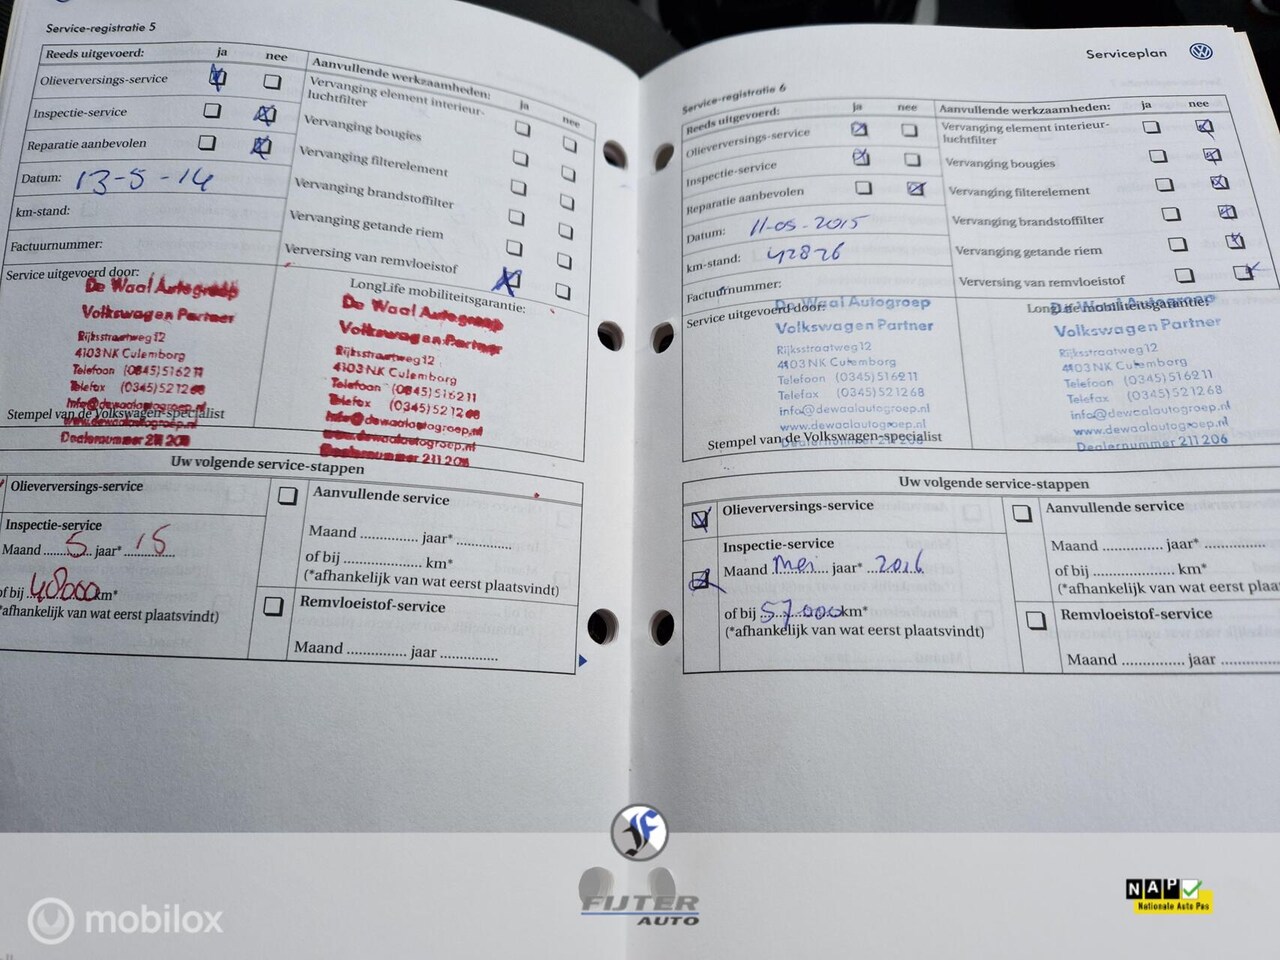 Service-registratie 5
Reeds uitgevoerd: ja nee
Olieverversings-service
Inspectie-service
Reparatie aanbevolen
Datum: 13-5-14
km-stand:
Factuurnummer:
Service uitgevoerd door:
De Waal Autogroep
Volkswagen Partner
Rijksstraatweg 12
4103 NK Culemborg
Telefoon (0345) 516211
Telefax (0345) 521268
info@dewaalautogroep.nl
www.dewaalautogroep.nl
Stempel van de Volkswagen-specialist
Dealernummer 211 206
Aanvullende werkzaamheden: ja nee
Vervanging element interieur-
luchtfilter
Vervanging bougies
Vervanging filterelement
Vervanging brandstoffilter
Vervanging getande riem
Verversing van remvloeistof
LongLife mobiliteitsgarantie:
De Waal Autogroep
Volkswagen Partner
Rijksstraatweg 12
4103 NK Culemborg
Telefoon (0345) 516211
Telefax (0345) 521268
info@dewaalautogroep.nl
www.dewaalautogroep.nl
Dealernummer 211 206
Uw volgende service-stappen
Olieverversings-service
Inspectie-service
Maand 5 jaar* 15
of bij 48000 km*
*afhankelijk van wat eerst plaatsvindt)
Aanvullende service
Maand ............. jaar* ............
of bij .................. km*
(*afhankelijk van wat eerst plaatsvindt)
Remvloeistof-service
Maand ............. jaar .............
Serviceplan
Service-registratie 6
Reeds uitgevoerd: ja nee
Olieverversings-service
Inspectie-service
Reparatie aanbevolen
Datum: 11-05-2015
km-stand: 42826
Factuurnummer:
Service uitgevoerd door:
De Waal Autogroep
Volkswagen Partner
Rijksstraatweg 12
4103 NK Culemborg
Telefoon (0345) 516211
Telefax (0345) 521268
info@dewaalautogroep.nl
www.dewaalautogroep.nl
Stempel van de Volkswagen-specialist
Dealernummer 211 206
Aanvullende werkzaamheden: ja nee
Vervanging element interieur-
luchtfilter
Vervanging bougies
Vervanging filterelement
Vervanging brandstoffilter
Vervanging getande riem
Verversing van remvloeistof
LongLife mobiliteitsgarantie:
De Waal Autogroep
Volkswagen Partner
Rijksstraatweg 12
4103 NK Culemborg
Telefoon (0345) 516211
Telefax (0345) 521268
info@dewaalautogroep.nl
www.dewaalautogroep.nl
Dealernummer 211 206
Uw volgende service-stappen
Olieverversings-service
Inspectie-service
Maand mei jaar* 2016
of bij 57.000 km*
(*afhankelijk van wat eerst plaatsvindt)
Aanvullende service
Maand ............. jaar* .............
of bij .................. km*
(*afhankelijk van wat eerst plaa
Remvloeistof-service
Maand ............. jaar .............
mobilox
FIJTER
AUTO
NAP
Nationale Auto Pas